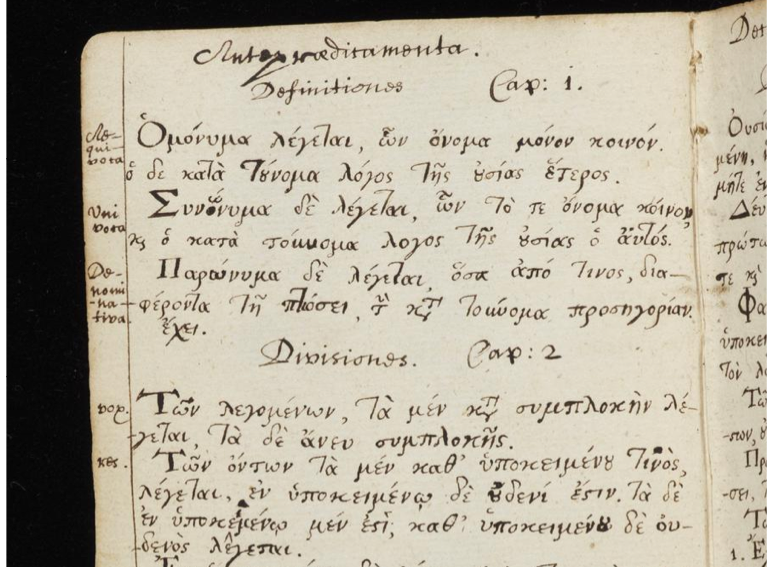 Antepraedicamenta.
Definitiones Cap: 1.
Ae-
qui-
voca
Ὁμόνυμα λέγεται, ὧν ὄνομα μόνον κοινόν.
ὁ δε κατὰ τὔνομα λόγος τῆς ȣσίας ἕτερος.
Uni
voca
Συνώνυμα δὲ λέγεται, ὧν τὸ τε ὄνομα κόινον,
κς ὁ κατὰ τόυνομα λογος τῆς ȣσίας ὁ ἀυτός.
De-
nomi-
-na-
tiva.
Παρώνυμα δὲ λέγεται, ὅσα ἀπό τινος, δια-
φέροντα τῇ πτώσει, τὴν κατὰ τοὔνομα προσηγορίαν
ἔχει.
Divisiones. Cap: 2
vox.
Τῶν λεγομένων, τὰ μέν κατὰ συμπλοκὴν λέ-
-γεται, τὰ δὲ ἄνευ συμπλοκῆς.
res.
Τῶν ὄντων τὰ μέν καθ' ὑποκειμένȣ τινὸς,
λέγεται, ἐν ὑποκειμένῳ δὲ ȣδενί ἐϛιν. τὰ δὲ
ἐν ὑποκειμένῳ μέν ἐϛὶ, καθ' ὑποκειμένȣ δὲ ὀυ-
-δενὸς λέγεται.